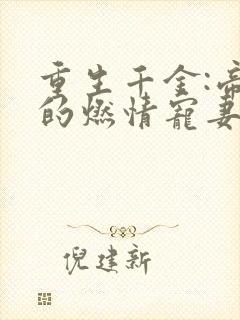 重生千金:帝
的燃情寵妻
倪建新